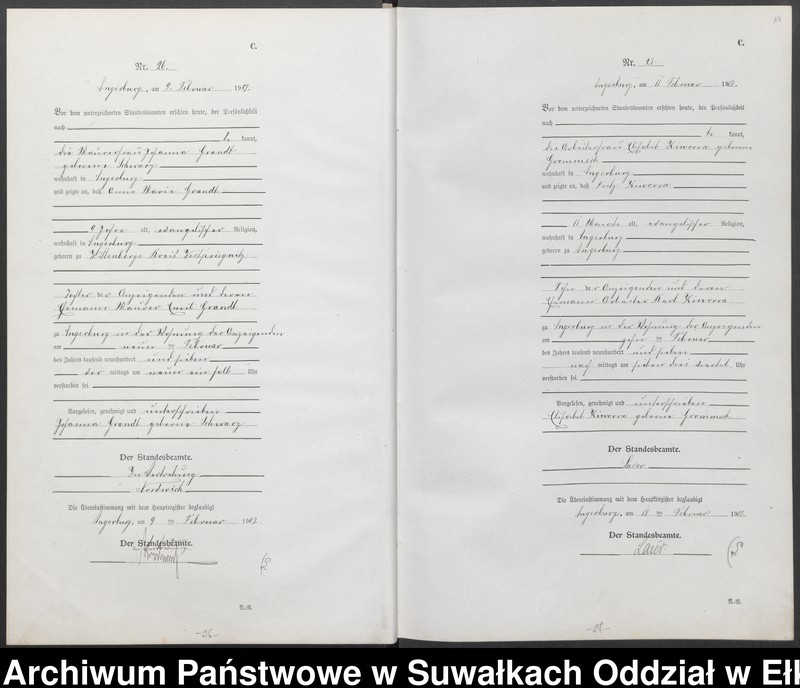 C.
Nr. 26.
Angerburg, am 9. Februar 1907.
Vor dem unterzeichneten Standesbeamten erschien heute, der Persönlichkeit
nach
be kannt,
die Maurerfrau Johanna Grandt
geborene Schwarz
wohnhaft in Angerburg
und zeigte an, daß Anna Marie Grandt
9 Jahre alt, evangelischer Religion,
wohnhaft in Angerburg
geboren zu Wittenberge Kreis Westpriegnitz
Tochter der Anzeigenden und deren
Ehemanns Maurer Emil Grandt
zu Angerburg in der Wohnung der Anzeigenden
am neun ten Februar
des Jahres tausend neunhundert und sieben
vor mittags um neun ein halb Uhr
verstorben sei.
Vorgelesen, genehmigt und unterschrieben
Johanna Grandt geborene Schwarz
Der Standesbeamte.
In Vertretung
Nordwich
Die Übereinstimmung mit dem Hauptregister beglaubigt
Angerburg, am 9 ten Februar 1907.
Der Standesbeamte.
In Vertretung
N.-R.
C.
Nr. 27
Angerburg, am 11 Februar 1907.
Vor dem unterzeichneten Standesbeamten erschien heute, der Persönlichkeit
nach
be kannt,
die Arbeiterfrau Elisabet Kiworra geborene
wohnhaft in Angerburg
und zeigte an, daß Fritz Kiworra
11 Monate alt, evangelischer Religion,
wohnhaft in Angerburg
geboren zu Angerburg
Sohn der Anzeigenden und deren
Ehemanns Arbeiter Karl Kiworra
zu Angerburg in der Wohnung der Anzeigenden
am zehn ten Februar
des Jahres tausend neunhundert und sieben
nach mittags um sieben drei viertel Uhr
verstorben sei.
Vorgelesen, genehmigt und unterschrieben
Elisabet Kiworra geborene
Der Standesbeamte.
Laser
Die Übereinstimmung mit dem Hauptregister beglaubigt
Angerburg, am 11 ten Februar 1907.
Der Standesbeamte.
N.-R.
Archiwum Państwowe w Suwałkach Oddział w Ełk